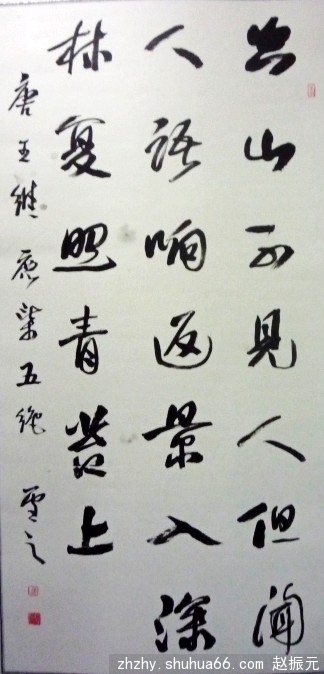 空山不見人但闻
人语响返景入深
林复照青苔上
唐王维鹿柴五绝
zhzhy.shuhua66.com 赵振元